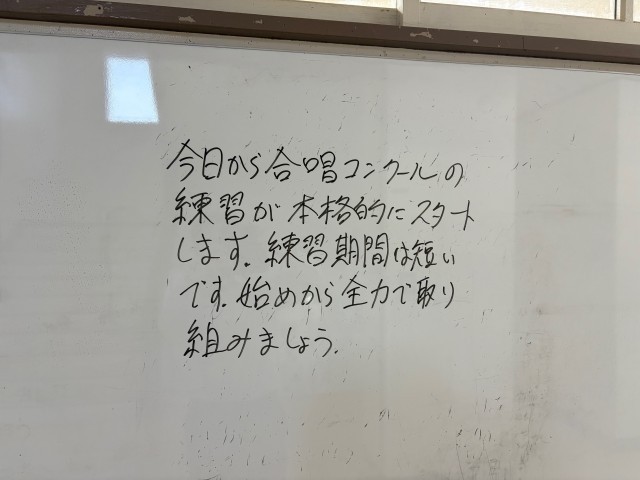 今日から合唱コンクールの
練習が本格的にスタート
します。練習期間は短い
です。始めから全力で取り
組みましょう。